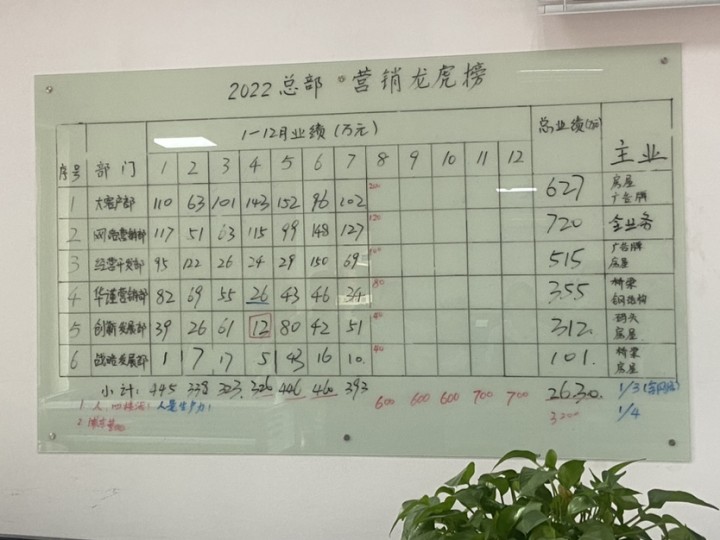 2022 总部·营销龙虎榜
序号 部门 1-12月业绩(万元) 总业绩(万元) 主业
1 2 3 4 5 6 7 8 9 10 11 12
1 大客户部 110 63 101 143 152 96 102 200 627 房屋 广告牌
2 网络营销部 117 51 63 115 99 148 127 120 720 全业务
3 经营开发部 95 122 26 24 29 150 69 515 广告牌 房屋
4 华谨营销部 82 69 55 26 43 46 34 80 355 桥梁 钢结构
5 创新发展部 39 26 61 12 80 42 51 312. 码头 房屋
6 战略发展部 1 7 17 5 43 16 10. 101. 桥梁 房屋
小计: 445 338 323. 326 446 460 393 600 600 600 700 700 2630. 1/3
3200 1/4
1. 人 人是生产力!
2.